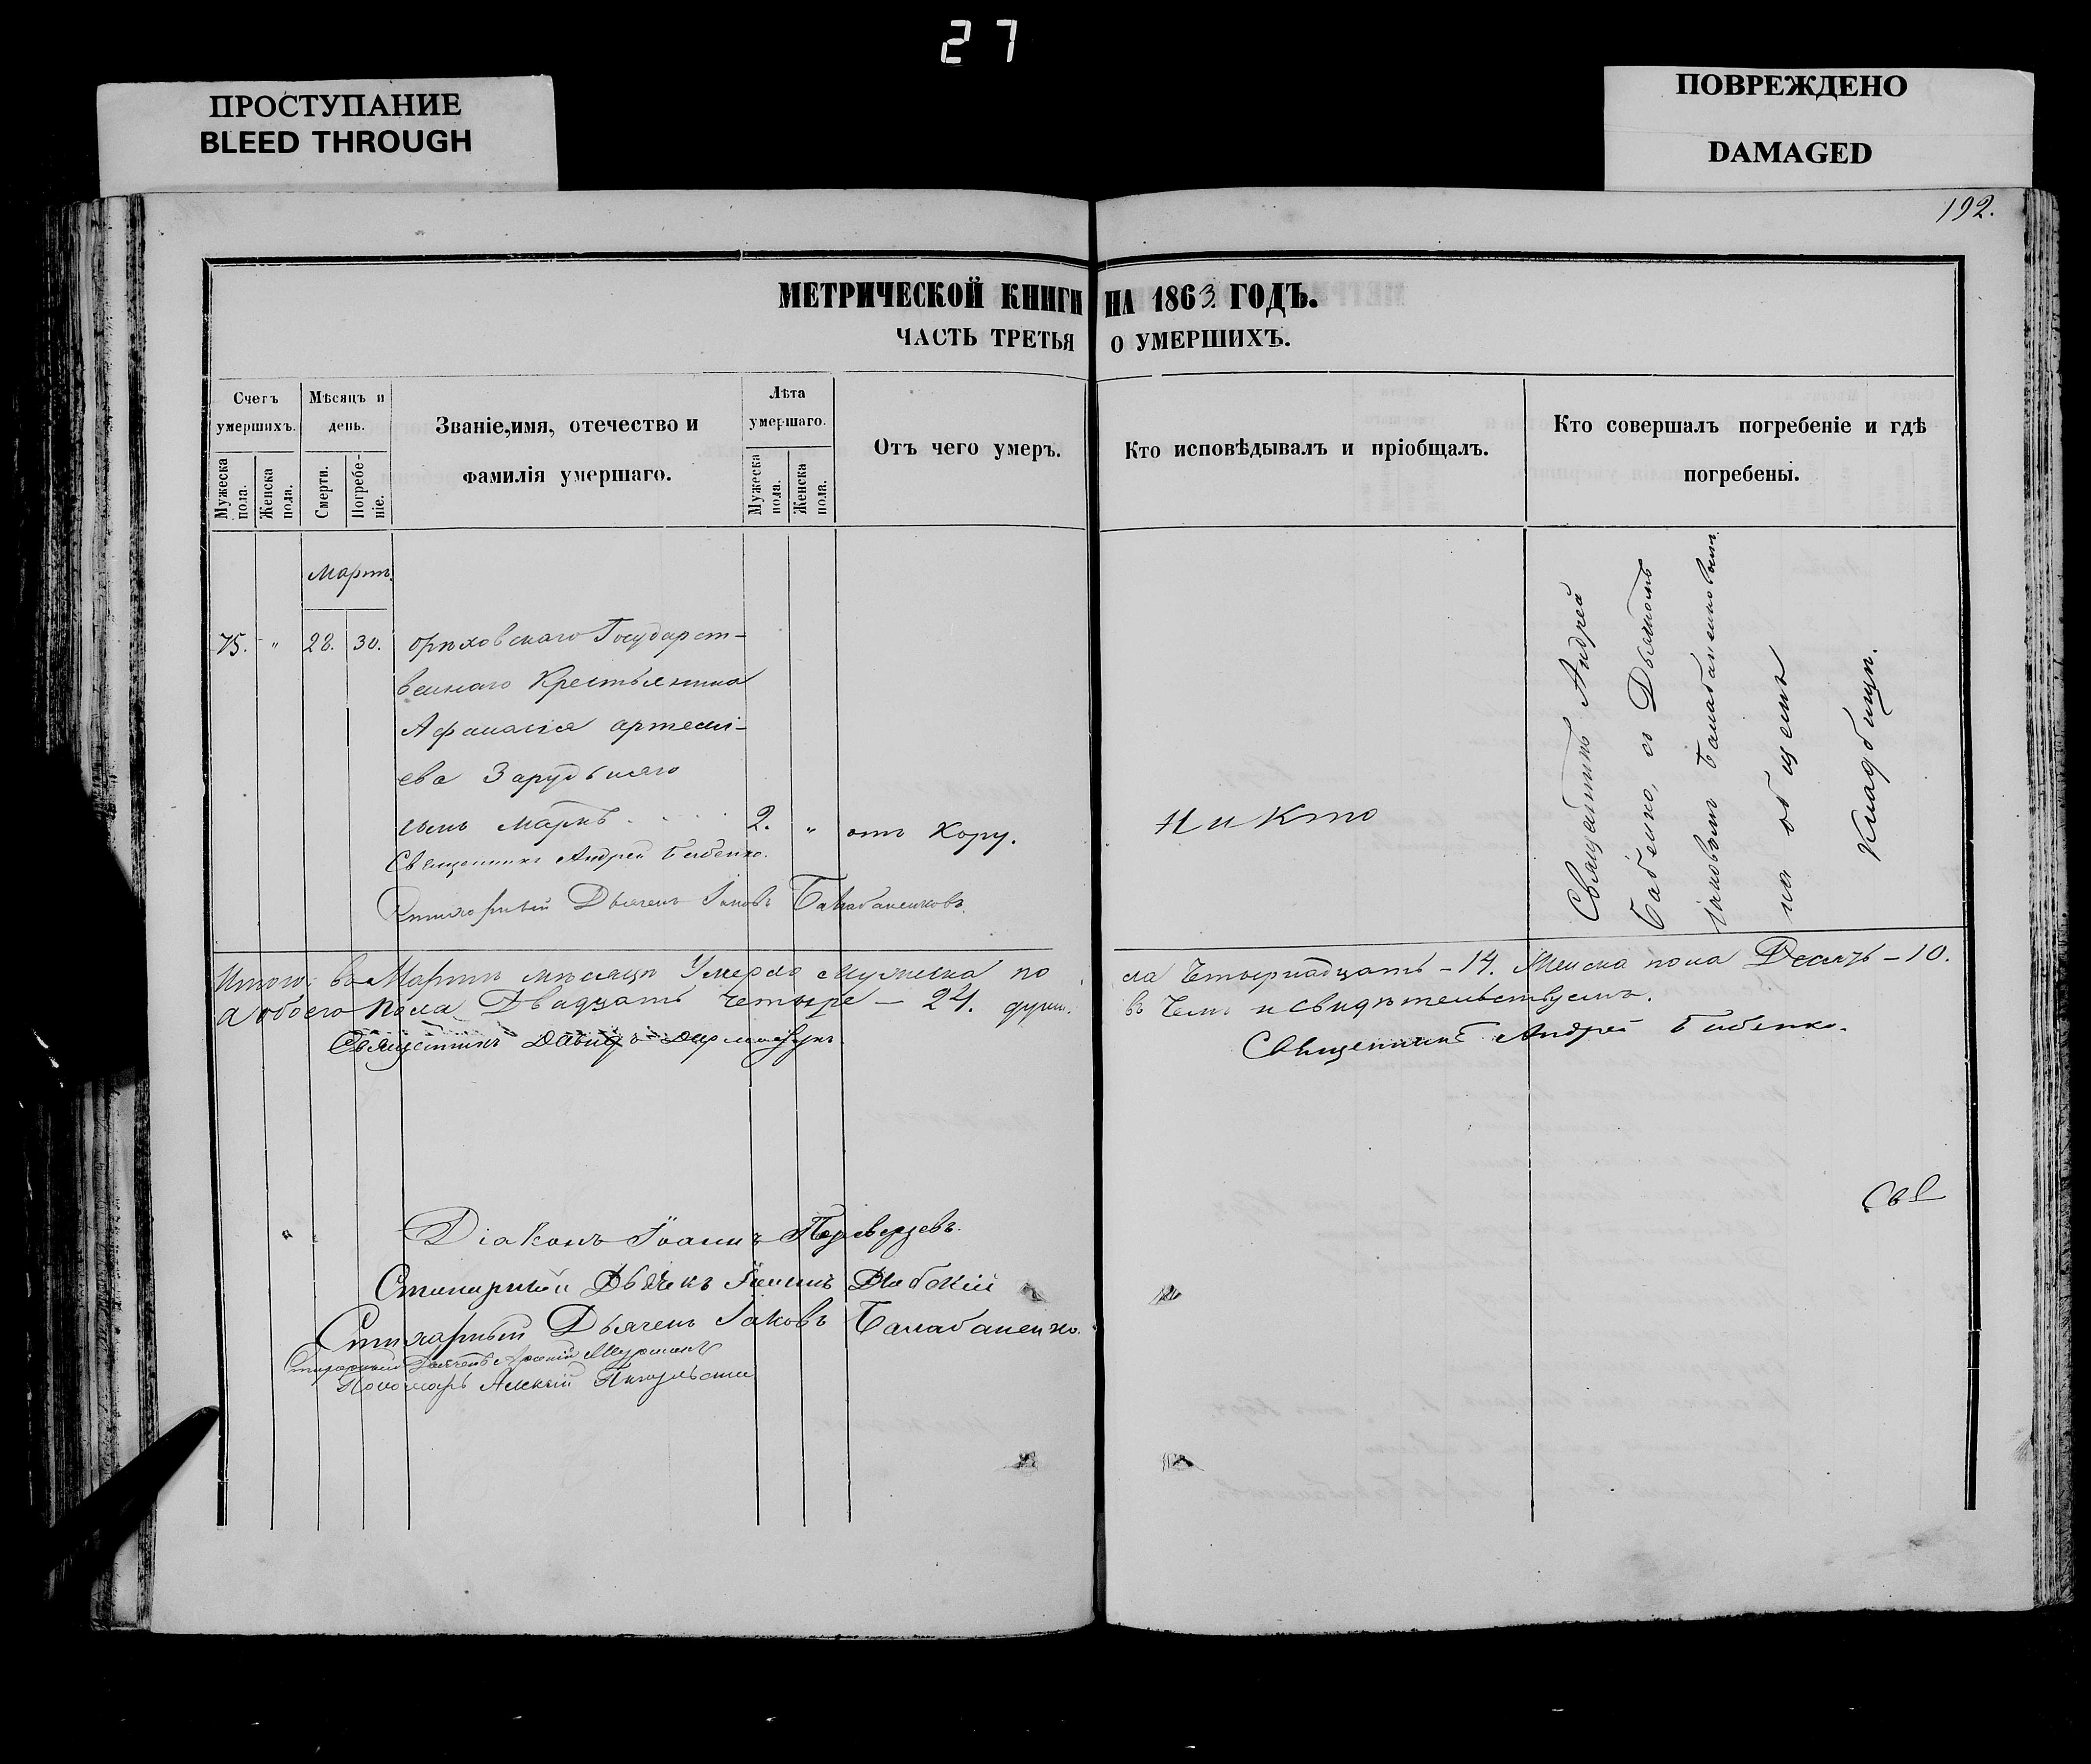 27
ПРОСТУПАНИЕ
BLEED THROUGH
ПОВРЕЖДЕНО
DAMAGED
192.
МЕТРИЧЕСКОЙ КНИГИ НА 1863. ГОДЪ.
ЧАСТЬ ТРЕТЬЯ О УМЕРШИХЪ.
Счетъ умершихъ.
Мужеска пола.
Женска пола.
Мѣсяцъ и день.
Смерти.
Погребе-ніе.
Званіе,имя, отечество и
фамилія умершаго.
Лѣта умершаго.
Мужеска пола.
Женска пола.
Отъ чего умеръ.
Кто исповѣдывалъ и пріобщалъ.
Кто совершалъ погребеніе и гдѣ
погребены.
Мартъ.
75. " 28. 30. Орѣховскаго Государст-
веннаго Крестьянина
Афанасія Артемі-
ева
сынъ Маркъ 2. " отъ Кору.
Никто
Священникъ Андрей
Бабенко, съ Дьячкомъ
Іаковомъ
на общемъ
Кладбищѣ.
Священникъ Андрей Бабенко.
Стихарный Дьячекъ Іаковъ
Итого: въ Мартѣ мѣсяцѣ Умерло Мужеска по
ла Четырнадцать - 14. Женска пола Десять - 10.
а обоего пола Двадцать четыре - 24. души.
въ Чемъ и свидѣтельствуемъ.
Священникъ
Священникъ Андрей Бабенко.
Діаконъ Іоаннъ Переверзевъ.
Стихарный Дьячекъ Іоаннъ
Стихарный Дьячекъ Іаковъ Балабаненко.
Стихарный Дьячекъ
Пономарь Алексій